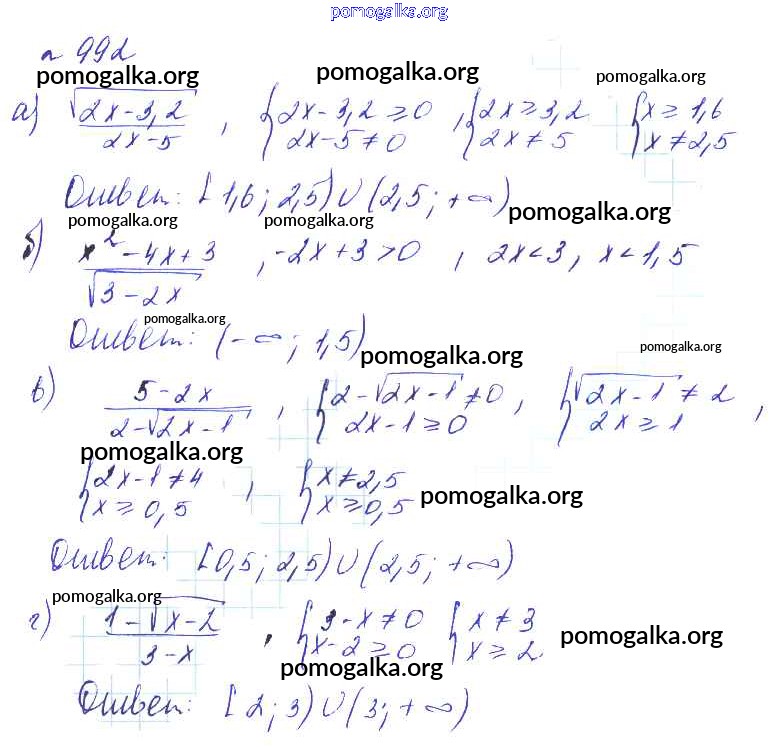 pomogalka.org
n 992
pomogalka.org pomogalka.org pomogalka.org
а) √(2x-3,2)/(2x-5) , {2x-3,2≥0 2x-5≠0 , {2x≥3,2 2x≠5 {x≥1,6 x≠2,5
Ответ: [1,6; 2,5)∪(2,5; +∞)
pomogalka.org pomogalka.org pomogalka.org
б) (x²-4x+3)/√(3-2x) , -2x+3>0 , 2x<3, x<1,5
pomogalka.org
Ответ: (-∞; 1,5)
pomogalka.org pomogalka.org
в) (5-2x)/(2-√(2x-1)) , {2-√(2x-1)≠0 2x-1≥0 , {√(2x-1)≠2 2x≥1 ,
pomogalka.org
{2x-1≠4 x≥0,5 , {x≠2,5 x≥0,5
pomogalka.org
Ответ: [0,5; 2,5)∪(2,5; +∞)
pomogalka.org
г) (1-√(x-2))/(3-x) , {3-x≠0 x-2≥0 {x≠3 x≥2
pomogalka.org pomogalka.org
Ответ: [2; 3)∪(3; +∞)